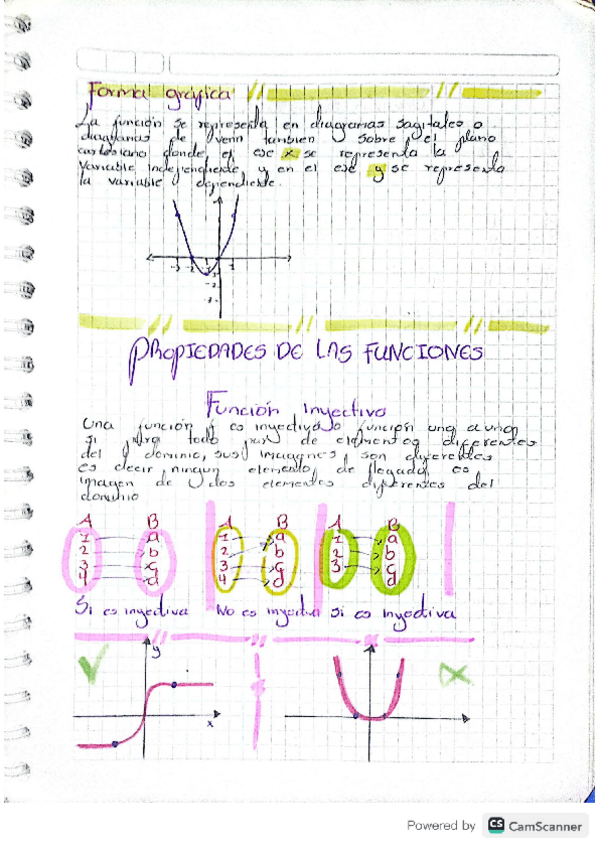 Forma gráfica
La función se representa en diagramas sagitales o
diagramas de venn tambien sobre el plano
cartesiano donde el eje x se representa la
variable independiente y en el eje y se representa
la variable dependiente.
-3 -2 -1 1
-2
-3
PROPIEDADES DE LAS FUNCIONES
Función inyectiva
Una función f es inyectiva o función uno a uno
si para todo par de elementos diferentes
del dominio, sus imagenes son diferentes
es decir, ningun elemento de llegada es
imagen de dos elementos diferentes del
dominio
A B A B A B
1 a 1 a 1 a
2 b 2 b 2 b
3 c 3 c 3 c
4 d 4 d d
Si es inyectiva No es inyectiva si es inyectiva
y
x
Powered by CS CamScanner